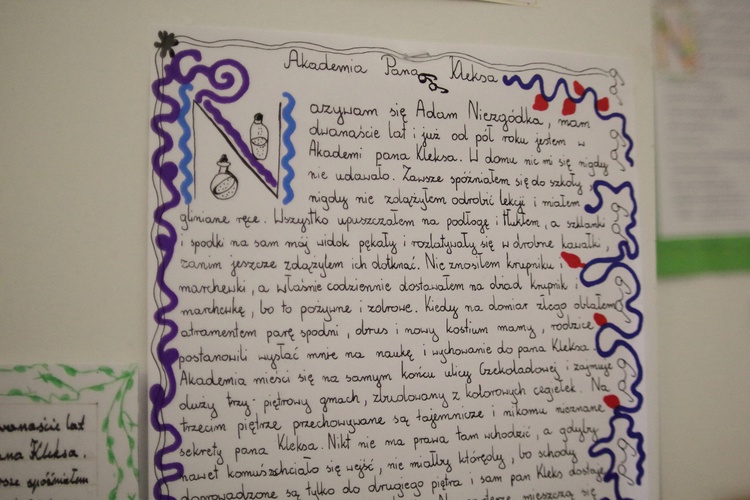 Akademia Pana Kleksa
Nazywam się Adam Niezgódka, mam
dwanaście lat i już od pół roku jestem w
Akademi pana Kleksa. W domu nic mi się nigdy
nie udawało. Zawsze spóźniałem się do szkoły,
nigdy nie zdążyłem odrobić lekcji i miałem
gliniane ręce. Wszystko upuszczałem na podłogę i tłukłem, a szklanki
i spodki na sam mój widok pękały i rozlatywały się w drobne kawałki,
zanim jeszcze zdążyłem ich dotknąć. Nie znosiłem krupniku i
marchewki, a właśnie codziennie dostawałem na obiad krupnik i
marchewkę, bo to pożywne i zdrowe. Kiedy na domiar złego oblałem
atramentem parę spodni, obrus i nowy kostium mamy, rodzice
postanowili wysłać mnie na naukę i wychowanie do pana Kleksa.
Akademia mieści się na samym końcu ulicy Czekoladowej i zajmuje
duży trzy-piętrowy gmach, zbudowany z kolorowych cegiełek. Na
trzecim piętrze przechowywane są tajemnicze i nikomu nieznane
sekrety pana Kleksa. Nikt nie ma prawa tam wchodzić, a gdyby
nawet komuś zchciało się wejść, nie miałby którędy, bo schody
doprowadzone są tylko do drugiego piętra i sam pan Kleks dostaje
mieszczą się
wanaście lat
ana Kleksa.
sze spóźniałem